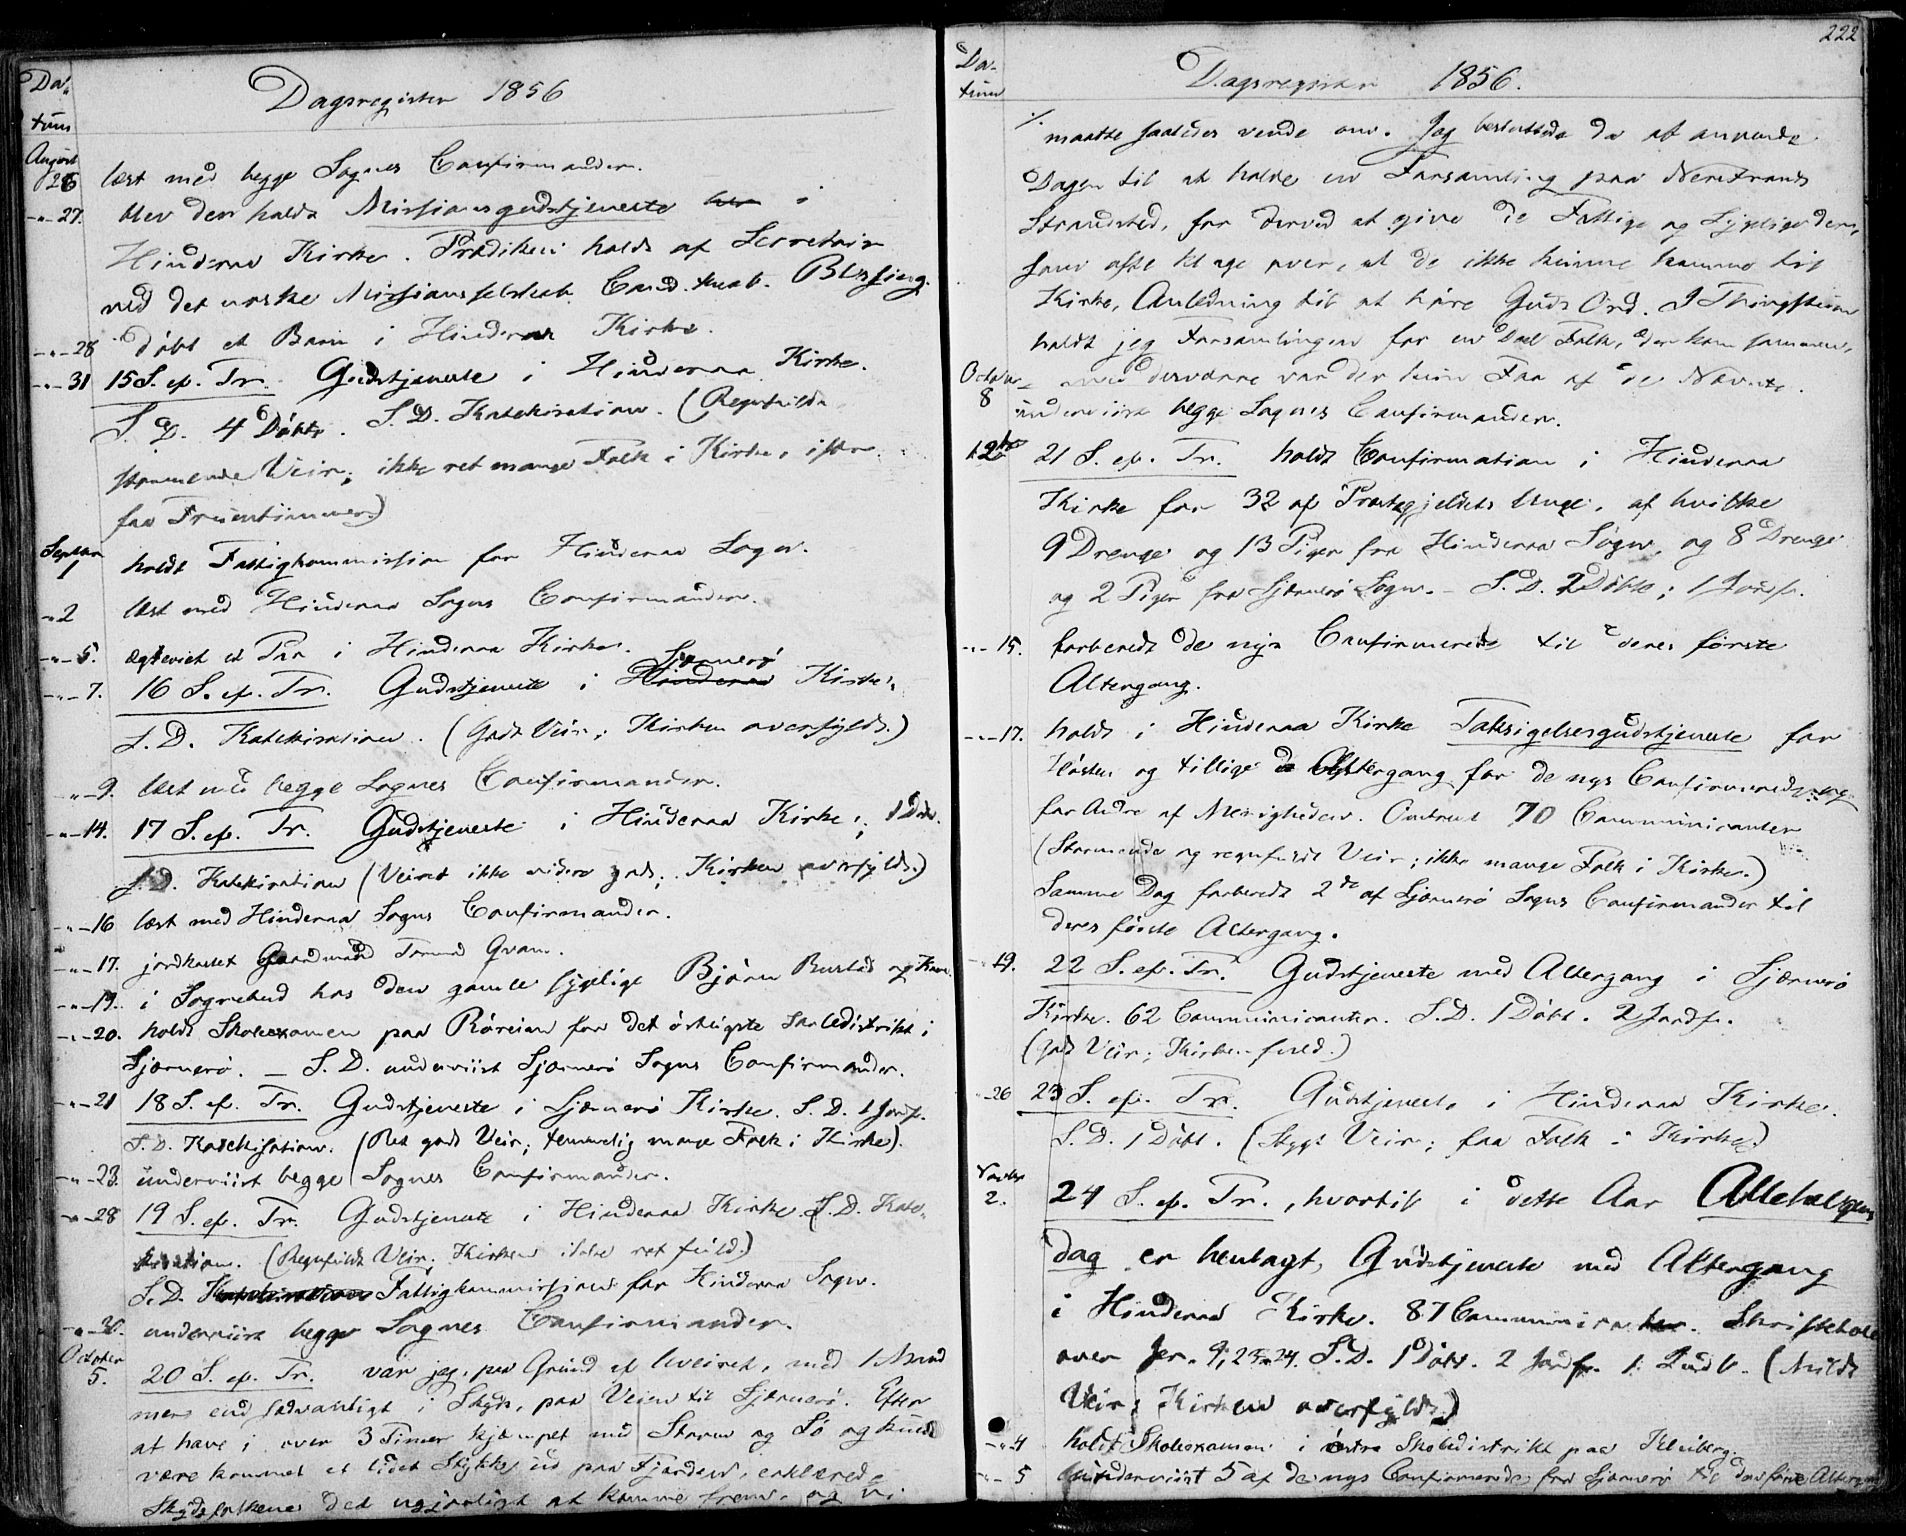 Da-
tum
Dagsregister 1856
August
26 læst med begge Sognes Confirmander.
-"-27. blev der holdt Missionsgudstjeneste her i
Hinderaa Kirke. Prædiken holdt af Secretair
ved det norske Missionsselskab Cand. theol. Blessing.
-"-28 døbt et Barn i Hinderaa Kirke.
-"-31 15 S. ef. Tr. Gudstjeneste i Hinderaa Kirke.
S. D. 4 Døbte. S. D. Katekisation. (Regnfuldt
stormende Veir; ikke ret mange Folk i Kirke, især
faa Fruentimmer.)
Septbr.
1 holdt Fattigkommission for Hinderaa Sogn.
-"-2 læst med Hinderaa Sogns Confirmander.
-"-5. ægteviet et Par i Hinderaa Kirke.
Sjærnerø
-"-7. 16 S. ef. Tr. Gudstjeneste i Hinderaa Kirke.
S. D. Katekisation. (Godt Veir; Kirken overfyldt.)
-"-9. læst med begge Sognes Confirmander.
-"-14. 17 S. ef. Tr. Gudstjeneste i Hinderaa Kirke; 1 Døbt.
S. D. Katekisation (Veiret ikke videre godt; Kirken overfyldt.)
-"-16 læst med Hinderaa Sogns Confirmander.
-"-17. jordkastet Gaardmand Tormod Qvam.
-"-19. i Sognebud hos den gamle sygelige Bjørn Bustad og Kone.
-"-20. holdt Skoleexamen paa Røreim for det østligste Skoledistrikt i
Sjærnerø. – S. D. underviist Sjærnerø Sogns Confirmander.
-"-21 18 S. ef. Tr. Gudstjeneste i Sjærnerø Kirke. S. D. 1 Jordf.
S. D. Katekisation. (Ret godt Veir; temmelig mange Folk i Kirke).
-"-23. underviist begge Sognes Confirmander.
-"-28 19 S. ef. Tr. Gudstjeneste i Hinderaa Kirke. S. D. Kate-
kisation. (Regnfuldt Veir; Kirken ikke ret fuld.)
S. D. Katekisation Fattigkommission for Hinderaa Sogn.
-"-30. underviist begge Sognes Confirmander.
October
5. 20 S. ef. Tr. var jeg, paa Grund af Uveiret, med 1 Mand
mere end sædvanligt i Skyds, paa Veien til Sjærnerø. Efter
at have i over 3 Timer kjæmpet med Storm og Sø og kun
være kommet et lidet Stykke ud paa Fjorden, erklærede
Skydsfolkene det ugjørligt at komme frem, og vi
222
Da-
tum
Dagsregister 1856.
./. maatte saaledes vende om. Jeg besluttede da at anvende
Dagen til at holde en Forsamling paa Nerstrands
Strandsted, for derved at give de Fattige og Sygelige der,
som ofte klage over, at de ikke kunne komme til
Kirke, Anledning til at høre Guds Ord. I Thingstuen
holdt jeg Forsamlingen for en Deel Folk, der kom sammen,
men desværre var der kun Faa af de Nævnte.
October
8 underviist begge Sognes Confirmander.
12te 21 S. ef. Tr. holdt Confirmation i Hinderaa
Kirke for 32 af Præstegjeldets Unge, af hvilke
9 Drenge og 13 Piger fra Hinderaa Sogn, og 8 Drenge
og 2 Piger fra Sjærnerø Sogn. – S. D. 2 Døbte; 1 Jordf.
-"-15. forberedt de nys Confirmerede til deres første
Altergang.
-"-17. holdt i Hinderaa Kirke Taksigelsesgudstjeneste for
Høsten og tillige Altergang for de nys Confirmerede og
for Andre af Menigheden. Omtrent 70 Communicanter
(Stormende og regnfuldt Veir; ikke mange Folk i Kirke.)
Samme Dag forberedt 2de af Sjærnerø Sogns Confirmander til
deres første Altergang.
-"-19. 22 S. ef. Tr. Gudstjeneste med Altergang i Sjærnerø
Kirke. 62 Communicanter. S. D. 1 Døbt. 2 Jordf.
(Godt Veir; Kirken fuld.)
-"-26 23 S. ef. Tr. Gudstjeneste i Hinderaa Kirke.
S. D. 1 Døbt. (Stygt Veir; faa Folk i Kirke.)
Novbr.
2. 24 S. ef. Tr., hvortil i dette Aar Allehelgens
dag er henlagt, Gudstjeneste med Altergang
i Hinderaa Kirke. 87 Communicanter. Skriftetale
over Jer. 9, 23-24. S. D. 1 Døbt. 2 Jordf. 1 (Mildt
Veir; Kirken overfyldt.)
-"-4 holdt Skoleexamen i østre Skoledistrikt paa Kleiberg.
-"-5 underviist 5 af de nys Confirmerede fra Sjærnerø til deres første Altergang